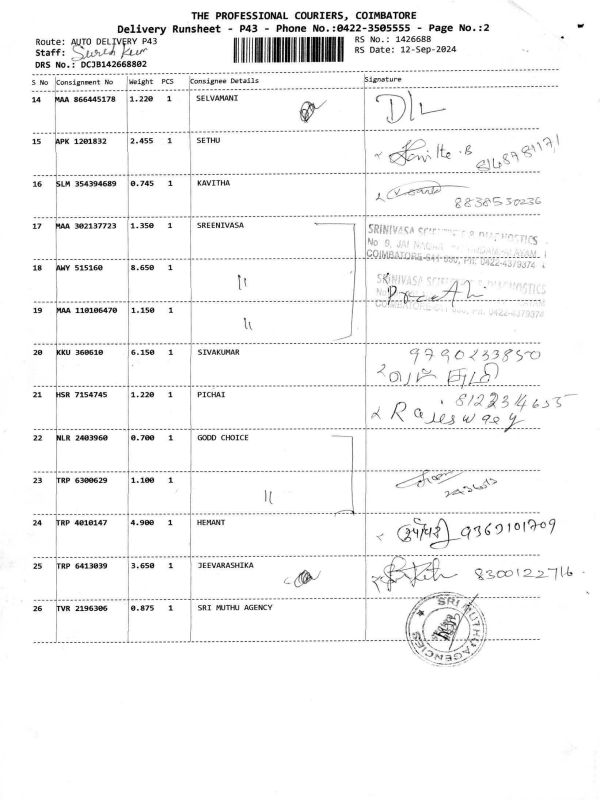 THE PROFESSIONAL COURIERS, COIMBATORE
Delivery Runsheet - P43 - Phone No.:0422-3505555 - Page No.:2
Route: AUTO DELIVERY P43
RS No.: 1426688
Staff:
RS Date: 12-Sep-2024
DRS No.: DCJB142668802
S No Consignment No Weight PCS Consignee Details Signature
14 MAA 866445178 1.220 1 SELVAMANI DIL
15 APK 1201832 2.455 1 SETHU
16 SLM 354394689 0.745 1 KAVITHA
8838530236
17 MAA 302137723 1.350 1 SREENIVASA
SRINIVASA SCIENTIFIC & DIAGNOSTICS
COIMBATORE-641 Ph. 0422-4379374
18 AWY 515160 8.650 1 〃
SRINIVASA SCIENTIFIC & DIAGNOSTICS
Preeth
19 MAA 110106470 1.150 1 〃
Ph. 0422-4379374
20 KKU 360610 6.150 1 SIVAKUMAR 9790233850
21 HSR 7154745 1.220 1 PICHAI
Rajeswary
22 NLR 2403960 0.700 1 GODD CHOICE
23 TRP 6300629 1.100 1 〃
24 TRP 4010147 4.900 1 HEMANT 9360101709
25 TRP 6413039 3.650 1 JEEVARASHIKA 8300122716
26 TVR 2196306 0.875 1 SRI MUTHU AGENCY
SRI MUTHU AGENCIES